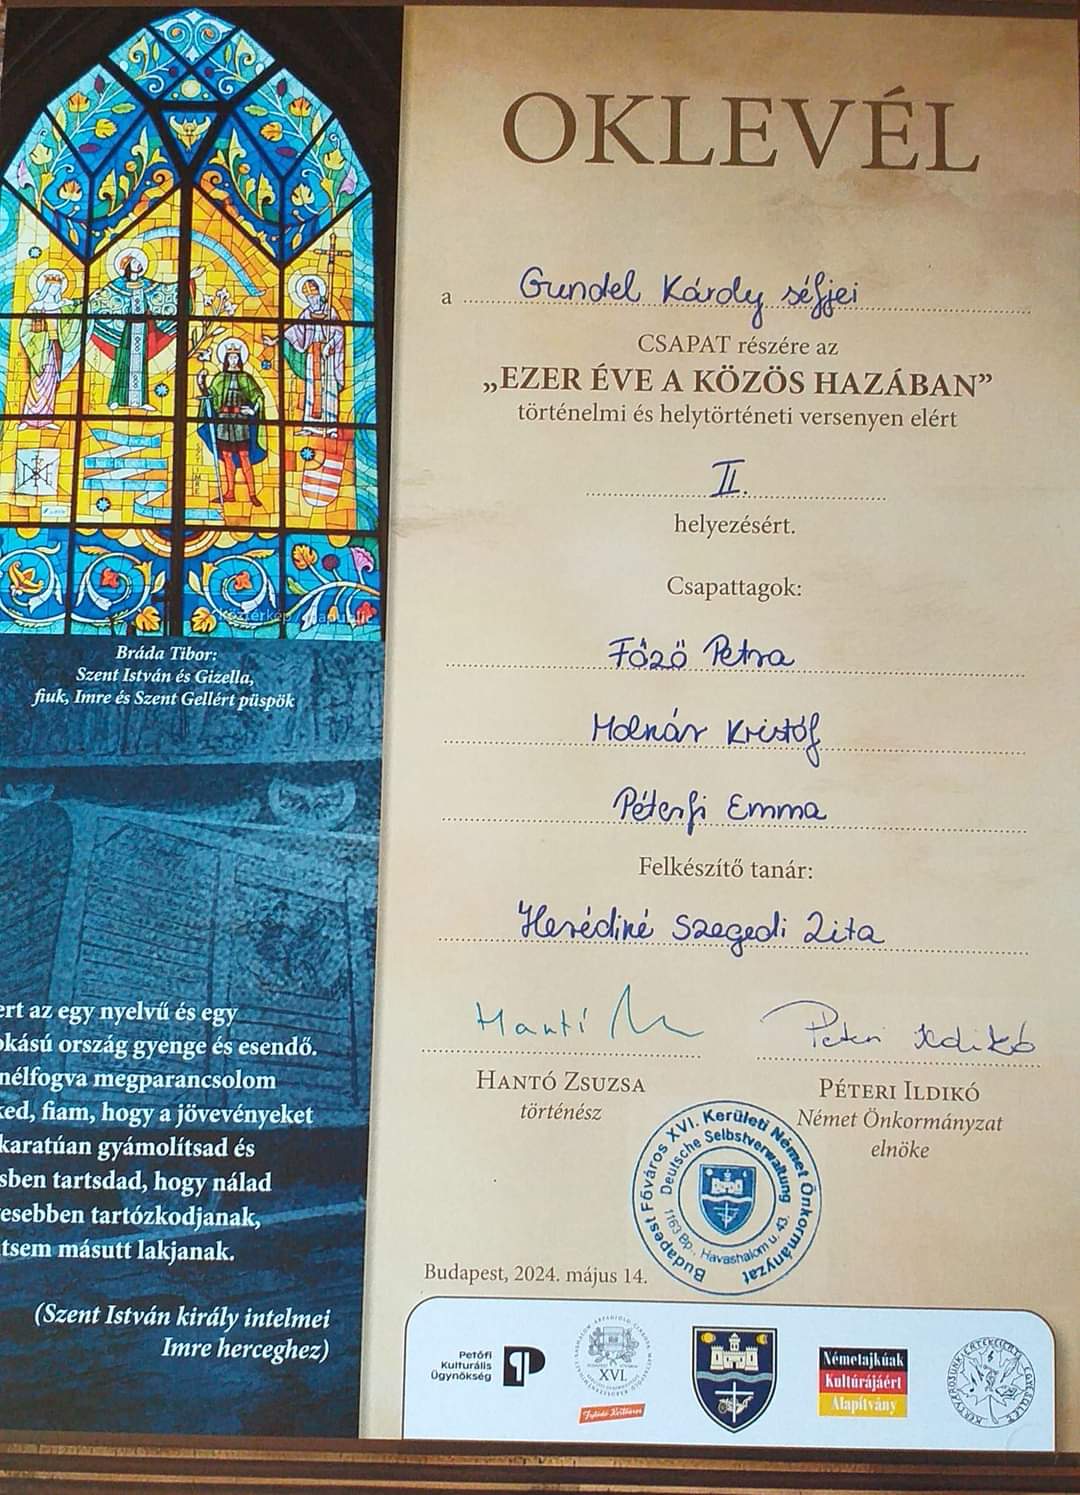 OKLEVÉL
a Gundel Károly séfjei
CSAPAT részére az
„EZER ÉVE A KÖZÖS HAZÁBAN”
történelmi és helytörténeti versenyen elért
II.
helyezésért.
Csapattagok:
Főző Petra
Molnár Kristóf
Péterfi Emma
Felkészítő tanár:
Herédiné Szegedi Zita
Hantó
Péteri Ildikó
HANTÓ ZSUZSA
történész
PÉTERI ILDIKÓ
Német Önkormányzat
elnöke
Budapest Főváros XVI. Kerületi Német Önkormányzat
Deutsche Selbstverwaltung
1163 Bp., Havashalom u. 43.
Budapest, 2024. május 14.
Bráda Tibor:
Szent István és Gizella,
fiuk, Imre és Szent Gellért püspök
ert az egy nyelvű és egy
okású ország gyenge és esendő.
nélfogva megparancsolom
ked, fiam, hogy a jövevényeket
karatúan gyámolítsad és
sben tartsdad, hogy nálad
esebben tartózkodjanak,
tsem másutt lakjanak.
(Szent István király intelmei
Imre herceghez)
Petőfi
Kulturális
Ügynökség
XVI.
Fejlődő Kertváros
Németajkúak
Kultúrájáért
Alapítvány
KERTVÁROSUNK ÉRTÉKEIÉRT EGYESÜLET